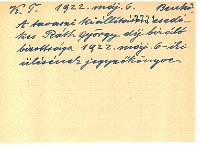 K. T. 1922. máj. 6.
A tavaszi kiállítás esedé-
kes Ráth György díj bíráló
bizottsága 1922. máj. 6-iki
ülésének jegyzőkönyve.